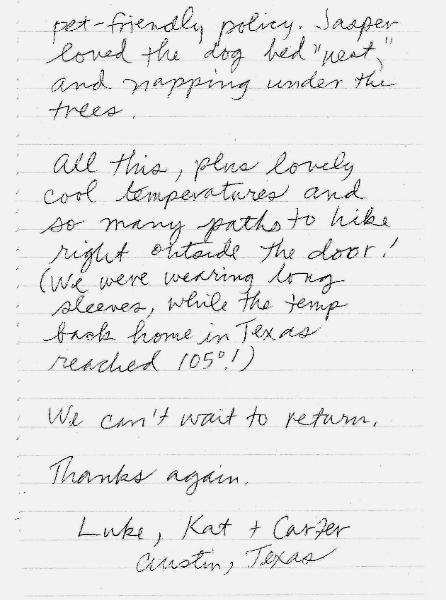 pet-friendly policy. Jasper
loved the dog bed "nest,"
and napping under the
trees.
All this, plus lovely
cool temperatures and
so many paths to hike
right outside the door!
(We were wearing long
sleeves, while the temp
back home in Texas
reached 105°!)
We can't wait to return.
Thanks again.
Luke, Kat + Carter
Austin, Texas